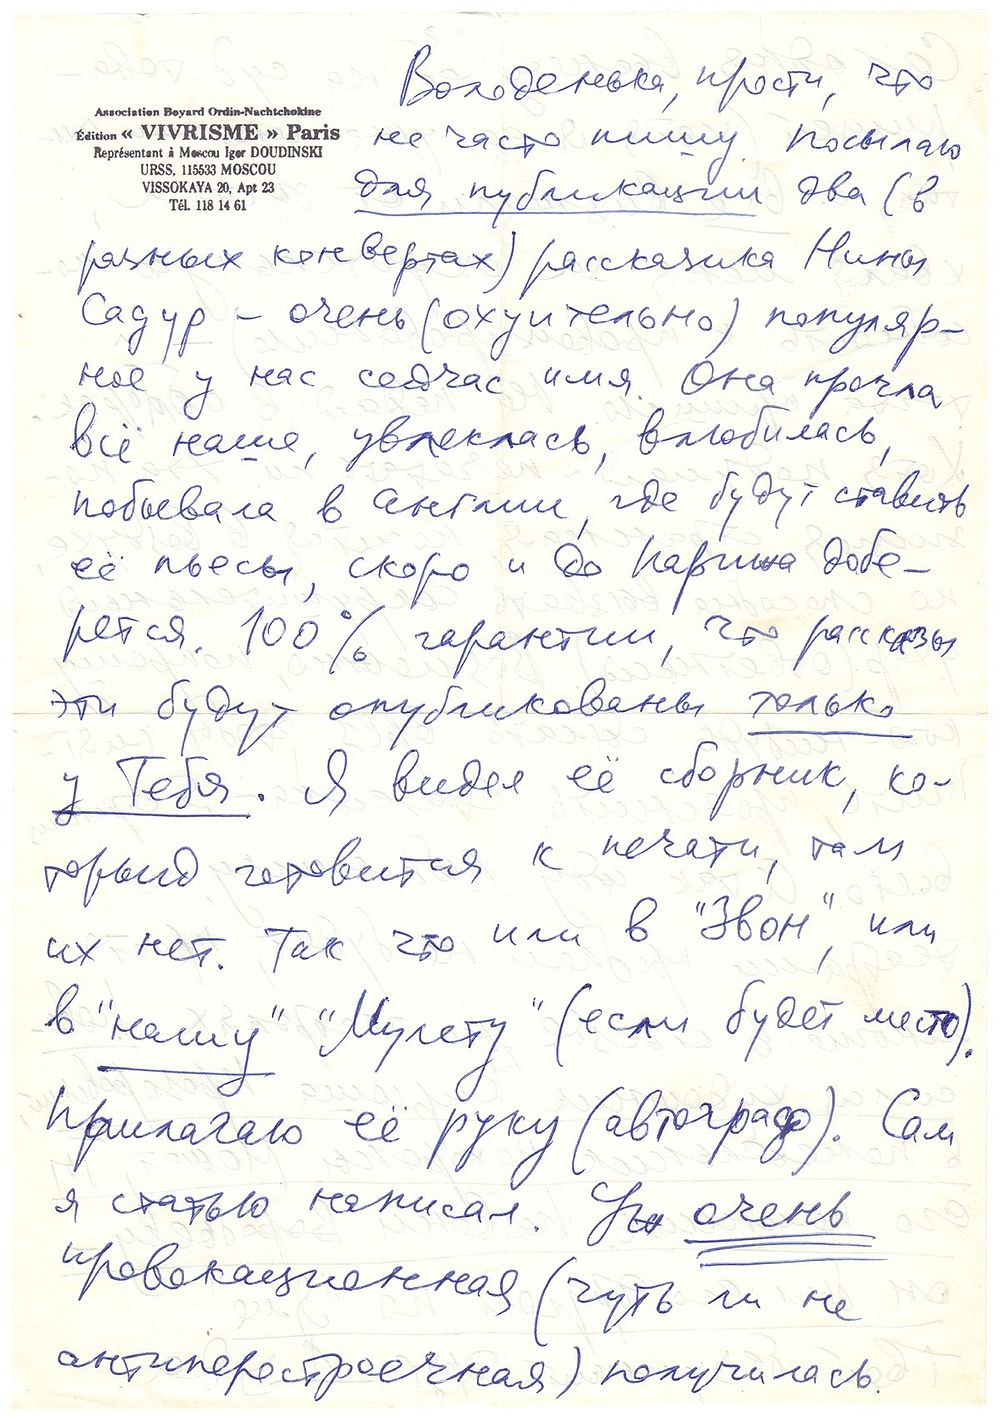 Association Boyard Ordin-Nachtchokine
Édition « VIVRISME » Paris
Représentant à Moscou Igor DOUDINSKI
URSS, 115533 MOSCOU
VISSOKAYA 20, Apt 23
Tél. 118 14 61
Володенька, прости, что
не часто пишу. Посылаю
для публикации два (в
разных конвертах) рассказика Нины
Садур – очень (охуительно) популяр-
ное у нас сейчас имя. Она прочла
всё наше, увлеклась, влюбилась,
побывала в Англии, где будут ставить
её пьесы, скоро и до Парижа добе-
рётся. 100% гарантии, что рассказы
эти будут опубликованы только
у Тебя. Я видел её сборник, ко-
торый готовится к печати, там
их нет. Так что или в "Звон", или
в "нашу" "Мулету" (если будет место).
Прилагаю её руку (автограф). Сам
я статью написал. Уж очень
провокационная (чуть ли не
антиперестроечная) получилась.